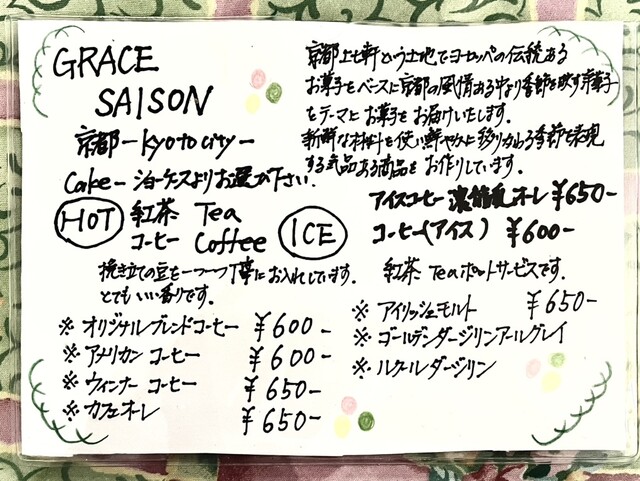 GRACE
SAISON
京都-Kyoto city-
京都上七軒という土地でヨーロッパの伝統ある
お菓子をベースに京都の風情ある中より季節を映す
をテーマにお菓子をお届けいたします。
新鮮な材料を使い鮮やかに移りかわる季節を表現
する気品ある商品をお作りしています。
Cake-ショーケースよりお選び下さい.
HOT 紅茶 Tea
コーヒー Coffee ICE
アイスコーヒー オレ ¥650-
コーヒー(アイス) ¥600-
挽き立ての豆を一つ一つ丁寧にお入れしています.
とてもいい香りです.
※オリジナルブレンドコーヒー ¥600-
※アメリカン コーヒー ¥600-
※ウィンナー コーヒー ¥650-
※カフェオーレ ¥650-
紅茶 Teaポットサービスです.
※アイリッシュモルト ¥650-
※ゴールデンダージリンアールグレイ
※ルクールダージリン